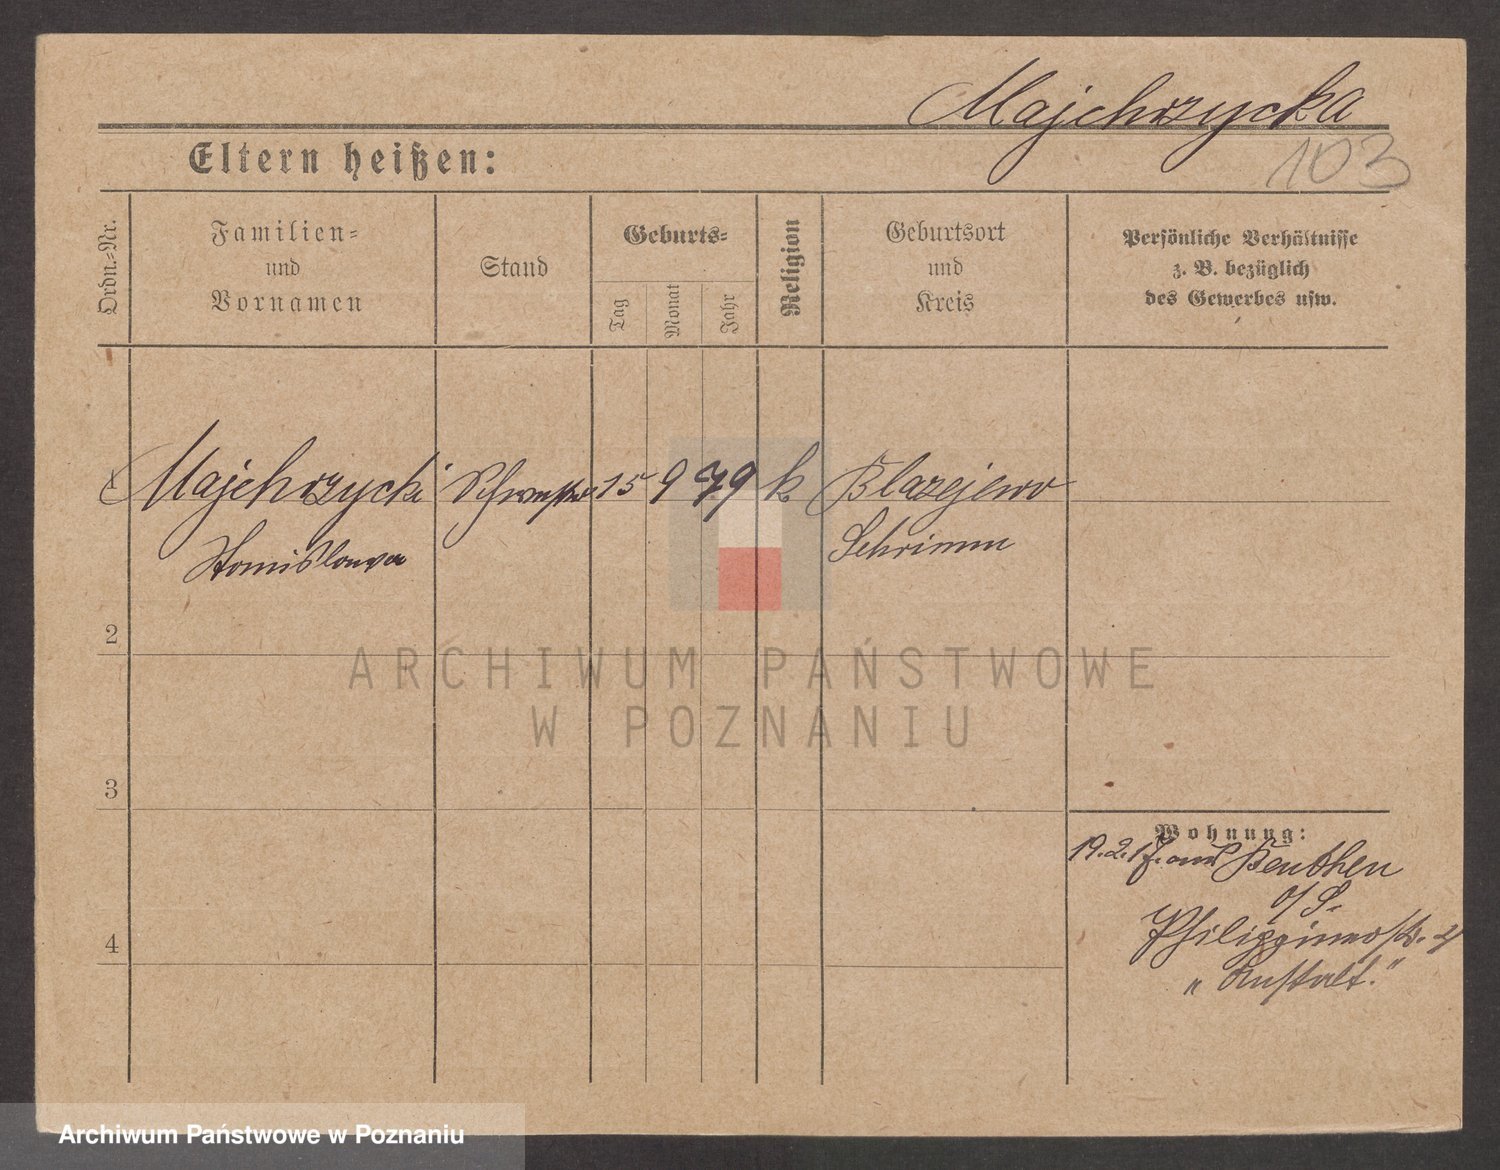 Majchrzycka
103
Eltern heißen:
Ordn.-Nr.
Familien-
und
Vornamen
Stand
Geburts-
Tag
Monat
Jahr
Religion
Geburtsort
und
Kreis
Persönliche Verhältnisse
z. B. bezüglich
des Gewerbes usw.
1 Majchrzycki Schwester 15 9 79 k. Blazejewo
Stanislawa Schrimm
2
3
4
Wohnung:
19.2.17. aus Beuthen
o/S.
Philippinenstr.
"Anstalt."
ARCHIWUM PAŃSTWOWE
W POZNANIU
Archiwum Państwowe w Poznaniu